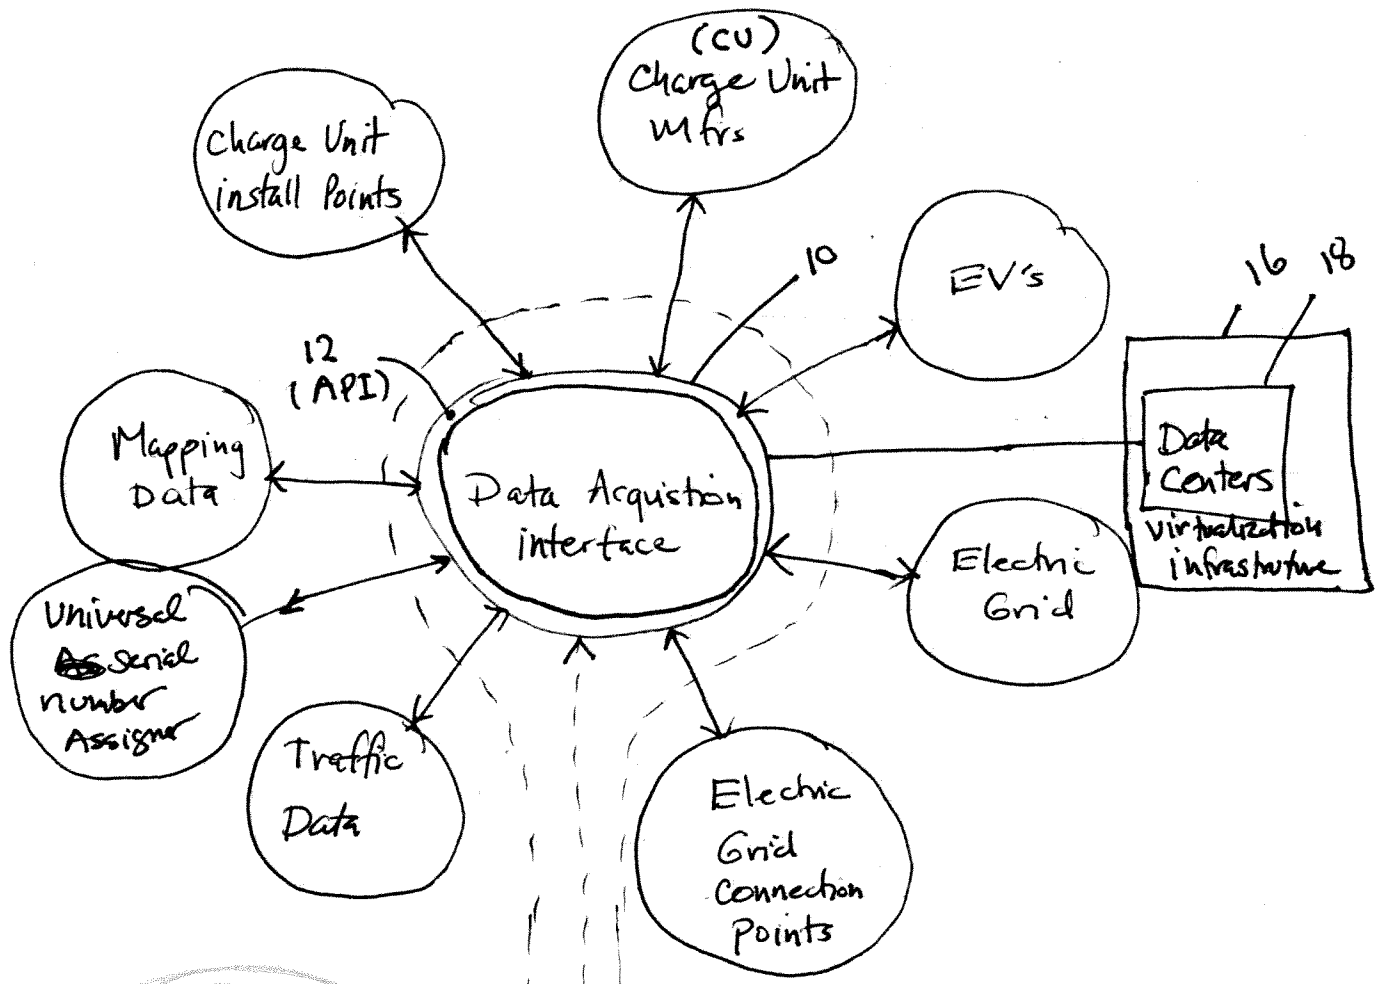 (CU)
Charge Unit
Mfrs
Charge Unit
install Points
10
EV's
16
18
12
(API)
Mapping
Data
Data Acquistion
interface
Data
Centers
Virtualization
infrastruture
Electric
Grid
Universal
Serial
number
Assigner
Traffic
Data
Electric
Grid
Connection
Points